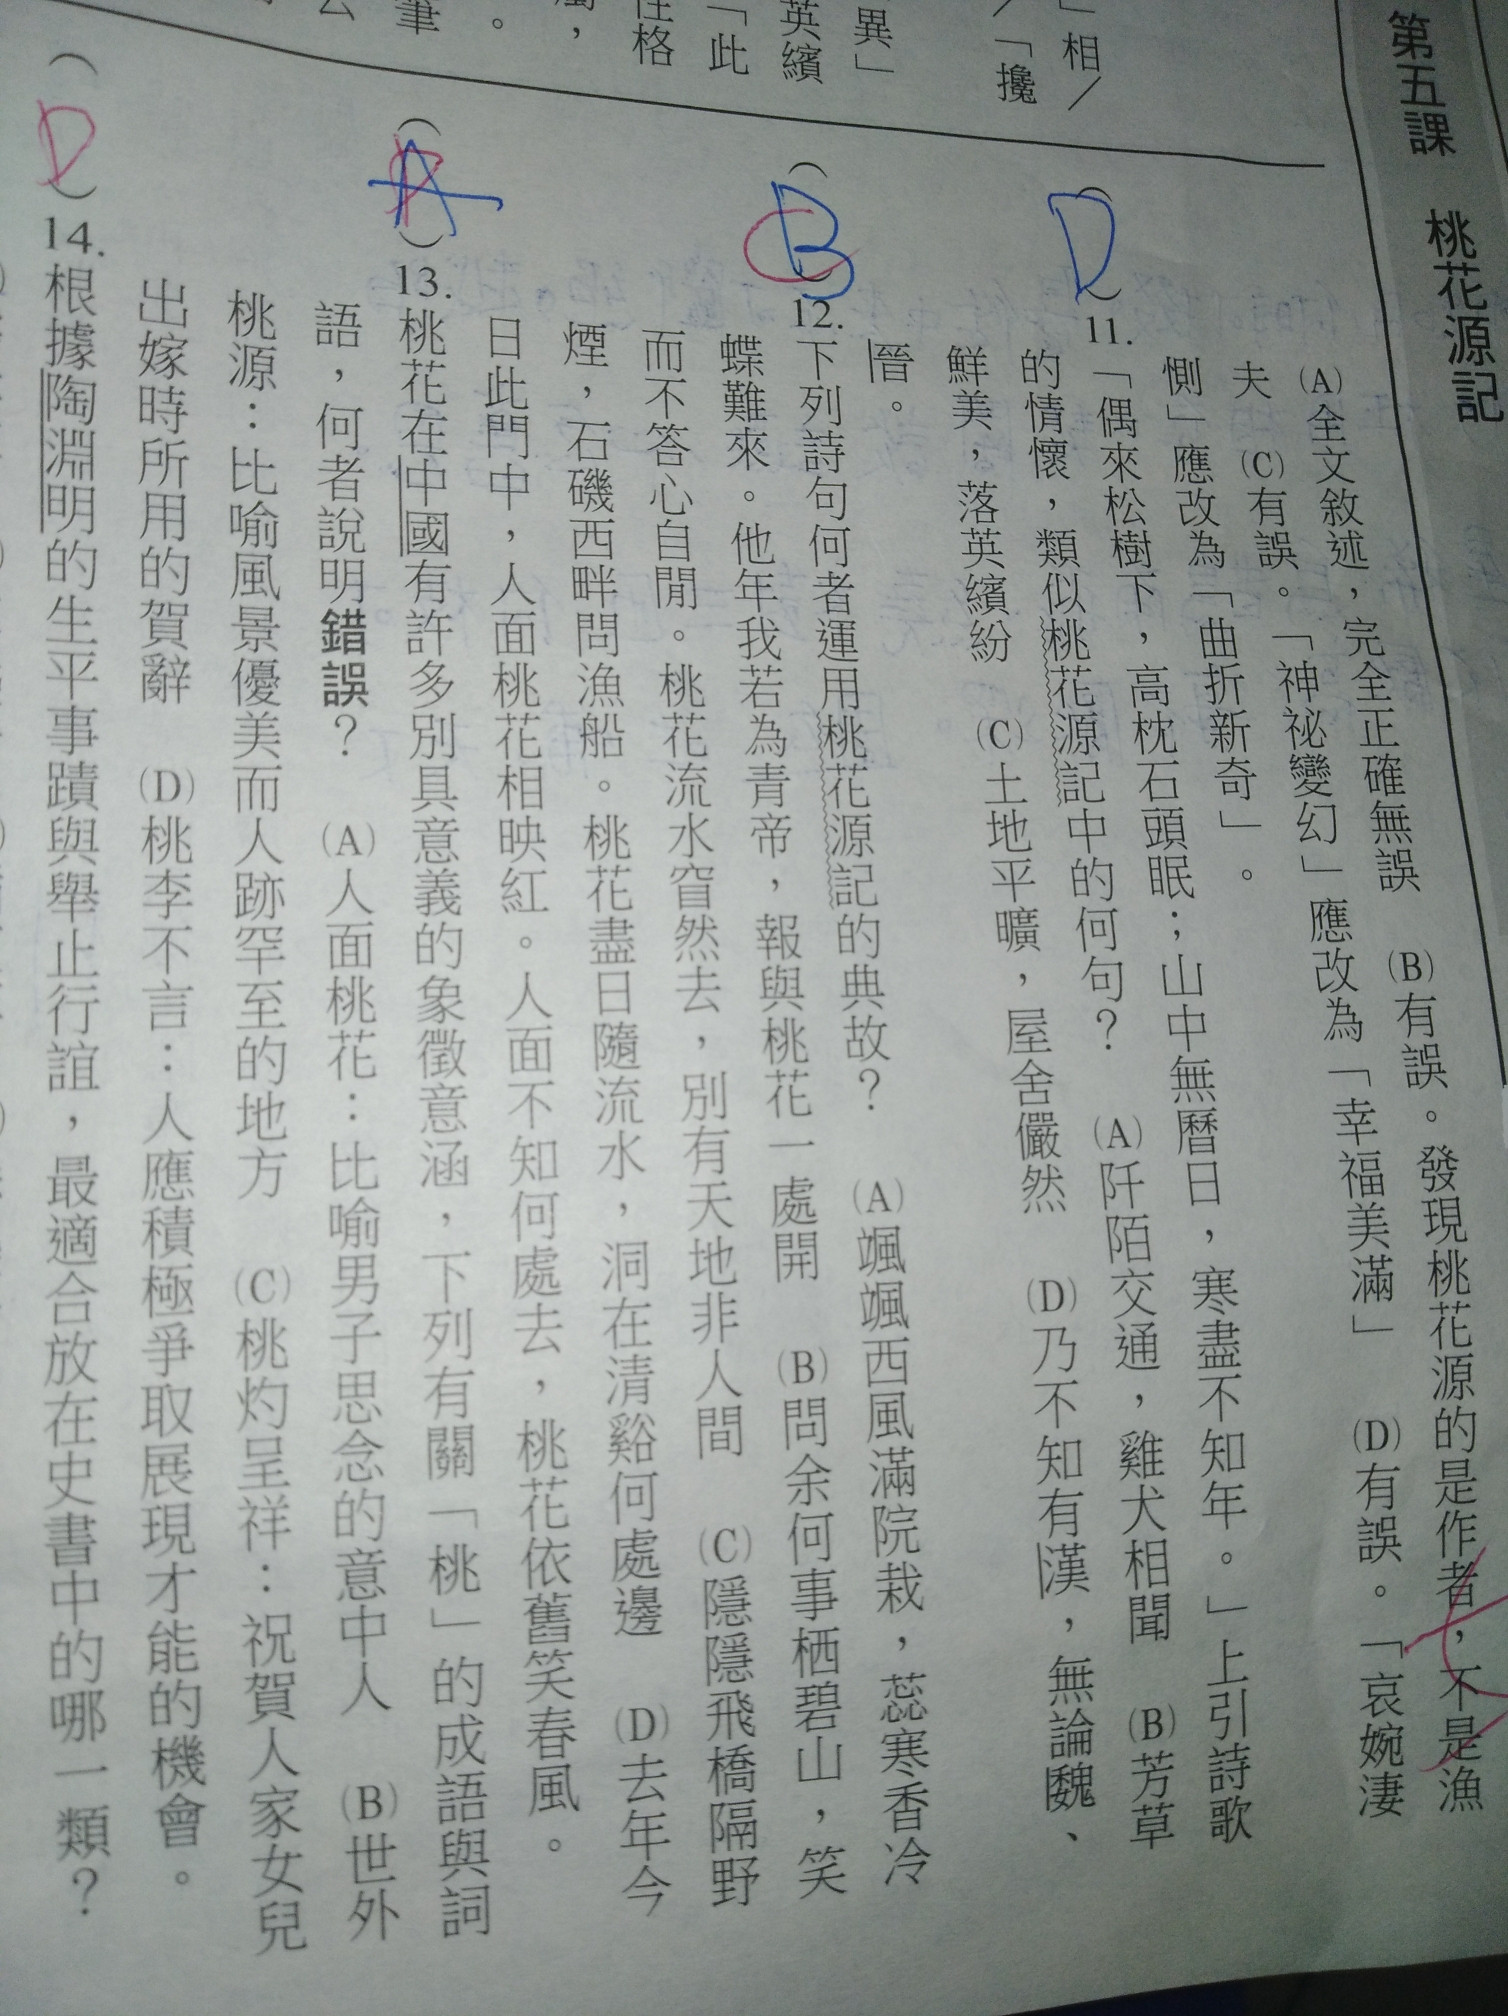 第五課 桃花源記
」相／
／「攙
異」
英繽
「此
性格
，
。
筆
(A)全文敘述，完全正確無誤 (B)有誤。發現桃花源的是作者，不是漁
夫 (C)有誤。「神祕變幻」應改為「幸福美滿」 (D)有誤。「哀婉淒
惻」應改為「曲折新奇」。
(D)11.「偶來松樹下，高枕石頭眠；山中無曆日，寒盡不知年。」上引詩歌
的情懷，類似桃花源記中的何句？ (A)阡陌交通，雞犬相聞 (B)芳草
鮮美，落英繽紛 (C)土地平曠，屋舍儼然 (D)乃不知有漢，無論魏、
晉。
(B C)12.下列詩句何者運用桃花源記的典故？ (A)颯颯西風滿院栽，蕊寒香冷
蝶難來。他年我若為青帝，報與桃花一處開 (B)問余何事栖碧山，笑
而不答心自閒。桃花流水窅然去，別有天地非人間 (C)隱隱飛橋隔野
煙，石磯西畔問漁船。桃花盡日隨流水，洞在清谿何處邊 (D)去年今
日此門中，人面桃花相映紅。人面不知何處去，桃花依舊笑春風。
(A)13.桃花在中國有許多別具意義的象徵意涵，下列有關「桃」的成語與詞
語，何者說明錯誤？ (A)人面桃花：比喻男子思念的意中人 (B)世外
桃源：比喻風景優美而人跡罕至的地方 (C)桃灼呈祥：祝賀人家女兒
出嫁時所用的賀辭 (D)桃李不言：人應積極爭取展現才能的機會。
(D)14.根據陶淵明的生平事蹟與舉止行誼，最適合放在史書中的哪一類？